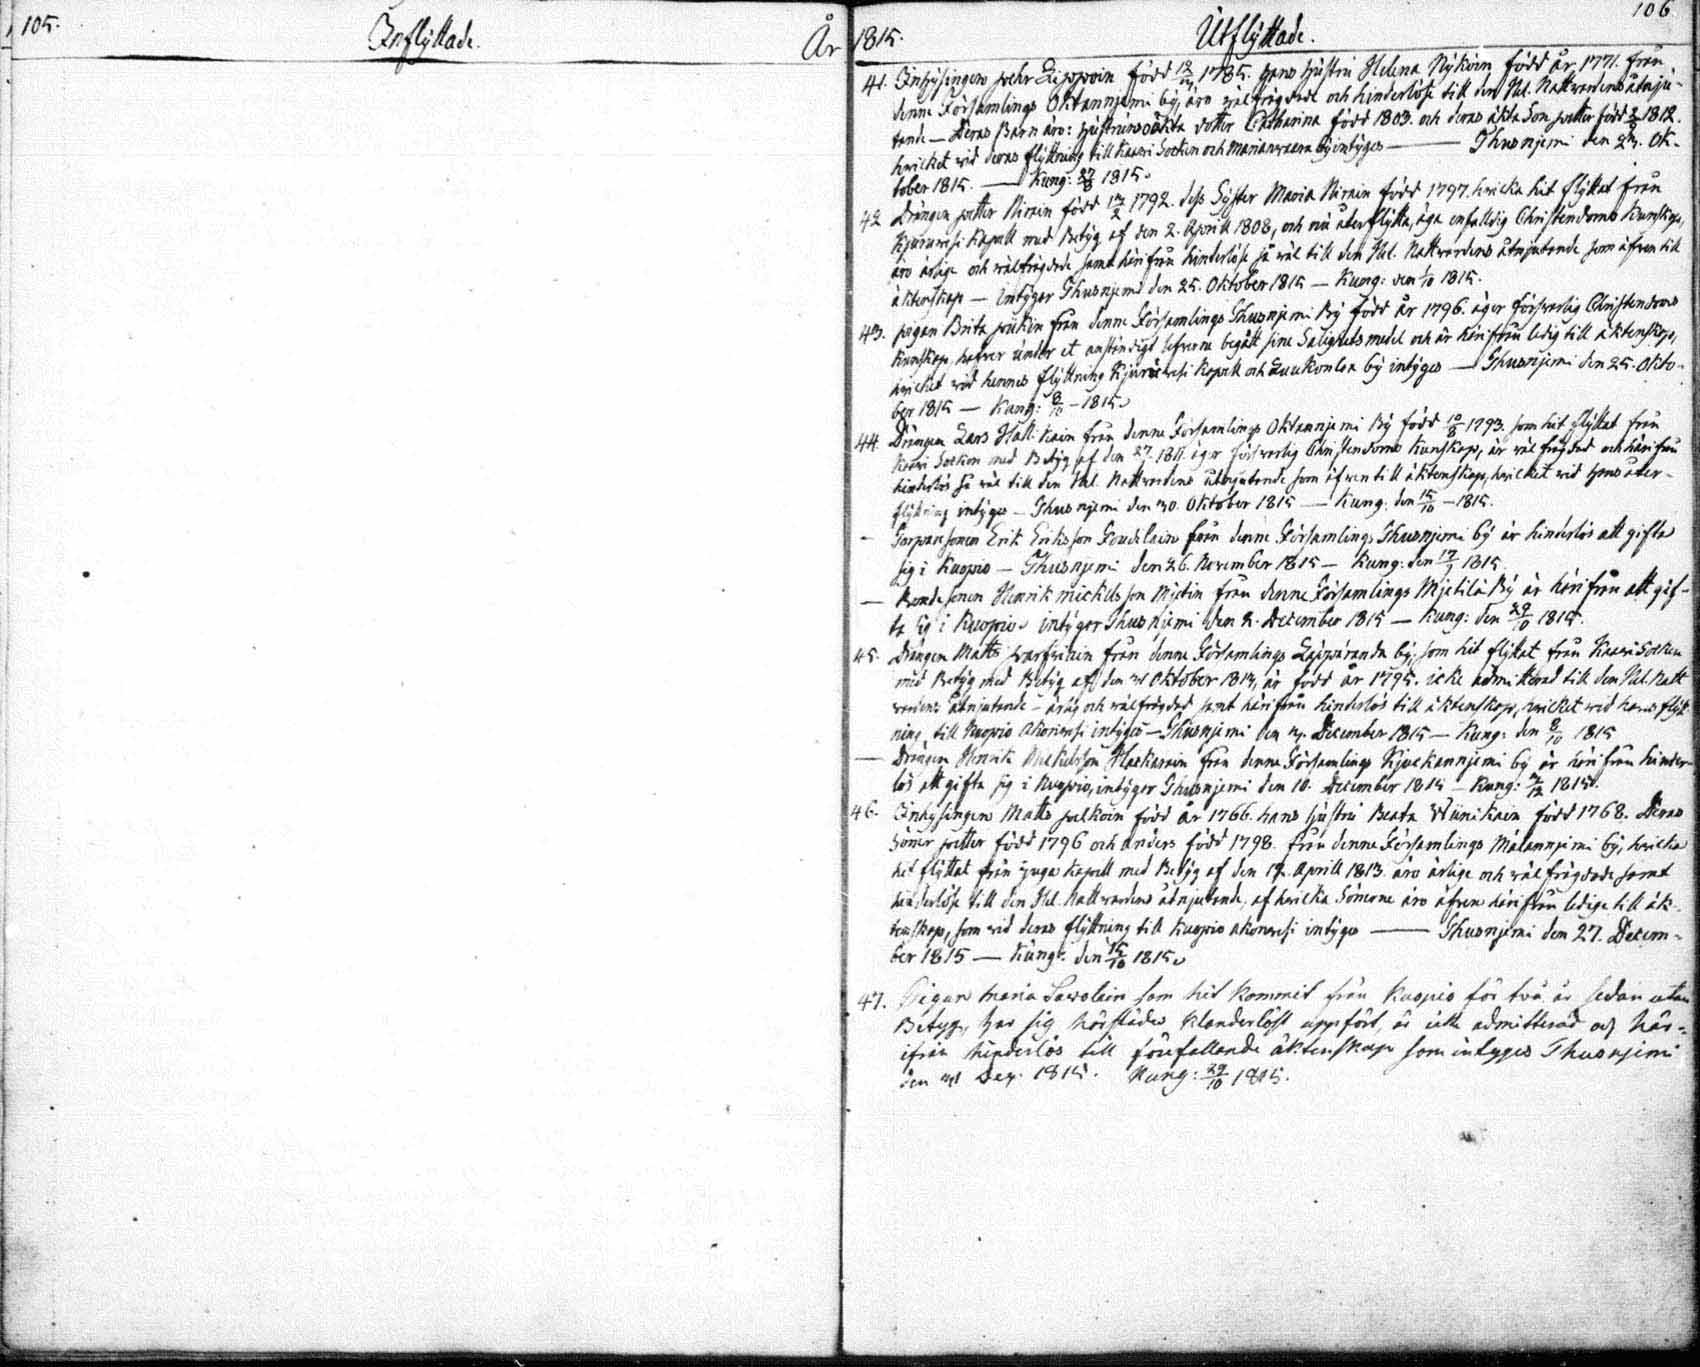 105.
Inflyttade.
År
1815.
Utflyttade.
106
41. Inhysingen pehr Lipspoin född 12/12 1785. hans hustru Helena Nykoin född år 1771. från
denne Församlings Oktannjemi by, äro välfrägdade och hinderlöse till den Hel. Nattvardens åtnju-
tande — Deras Barn äro: hustruns oäkta dotter Catharina född 1803. och deras äkta Son petter född 1812.
hvilket vid deras flyttning till Kaavi Socken och Marianvaara by intygas — Thusnjemi den 23. Ok-
tober 1815. — Kung: 27/8 1815.
42 Drängen petter Nirain född 1792. dess Syster Maria Nirain född 1797. hvilka hit flyttat från
Kjuruvesi Kapell med Betyg af den 2. Aprill 1808, och nu återflytta, äga enfaldig Christendoms Kunskap,
äro ärlige och välfrägdade samt härifrån hinderlöse så väl till den Hel. Nattvardens åtnjutande som äfven till
äktenskap — Intygar Thusnjemi den 25. Oktober 1815 — Kung: den 1/10 1815.
43. pigan Brita från denne Församlings Thusnjemi By född år 1796. äger försvarlig Christendoms
Kunskap, hafver under et anständigt lefverne begått sine Salighets medel och är härifrån ledig till äktenskap,
hvilket vid hennes flyttning Kjuruvesi Kapell och Luukonlax by intygas — Thusnjemi den 25. Okto-
ber 1815 — Kung: 8/10 — 1815.
44. Drängen Lars Hallikain från denne Församlings Oktannjemi By född 10/8 1793. som hit flyttat från
Kaavi Socken med Betyg af den 27. 1811. äger försvarlig Christendoms Kunskap, är välfrägdad och härifrån
hinderlös så väl till den Hel. Nattvardens åtnjutande som äfven till äktenskap, hvilket vid hans åter-
flyttning intygas — Thusnjemi den 30. Oktober 1815 — Kung: den 15/10 — 1815.
— Torparesonen Erik Eriksson från denne Församlings Thusnjemi by är hinderlös att gifta
sig i Kuopio — Thusnjemi den 26. November 1815 — Kung: den 1815.
— Bondesonen Henrik Mickelsson från denne Församlings Mjetilä By är härifrån att gif-
ta sig i Kuopio intygar Thusnjemi den 2. December 1815 — Kung: den 29/10 1815.
45. Drängen Matts från denne Församlings Läppäranda by, som hit flyttat från Kaavi Socken
med Betyg med Betyg af den 31 Oktober 1813, är född år 1795. icke admitterad till den Hel. Natt-
vardens åtnjutande — ärlig och välfrägdad samt härifrån hinderlös till äktenskap, hvilket vid hans flytt-
ning till Kuopio Akonvesi intygas — Thusnjemi den December 1815 — Kung: den 8/10 1815
— Drängen Henrik Mickelsson från denne Församlings by är härifrån hinder-
lös att gifta sig i Kuopio, intygar Thusnjemi den 10. December 1815 — Kung: 1815.
46. Inhysingen Matts född år 1766. hans hustru Beata Wiinikain född 1768. Deras
Söner petter född 1796 och anders född 1798. från denne Församlings Målannjemi by, hvilka
hit flyttat från Juga Kapell med Betyg af den Aprill 1813. äro ärlige och välfrägdade samt
hinderlöse till den Hel. Nattvardens åtnjutande, af hvilka Sönerne äro äfven härifrån ledige till äk-
tenskap, som vid deras flyttning till Kuopio akonvesi intygas — Thusnjemi den 27. Decem-
ber 1815 — Kung: den 15/10 1815.
47. Pigan Maria Sawolain som hit kommit från Kuopio för två år sedan utan
Betyg, har sig härstädes klanderlöst uppfört, är icke admitterad och här-
ifrån hinderlös till förefallande äktenskap som intygas Thusnjemi
den 31 Dez. 1815. Kung: 29/10 1815.